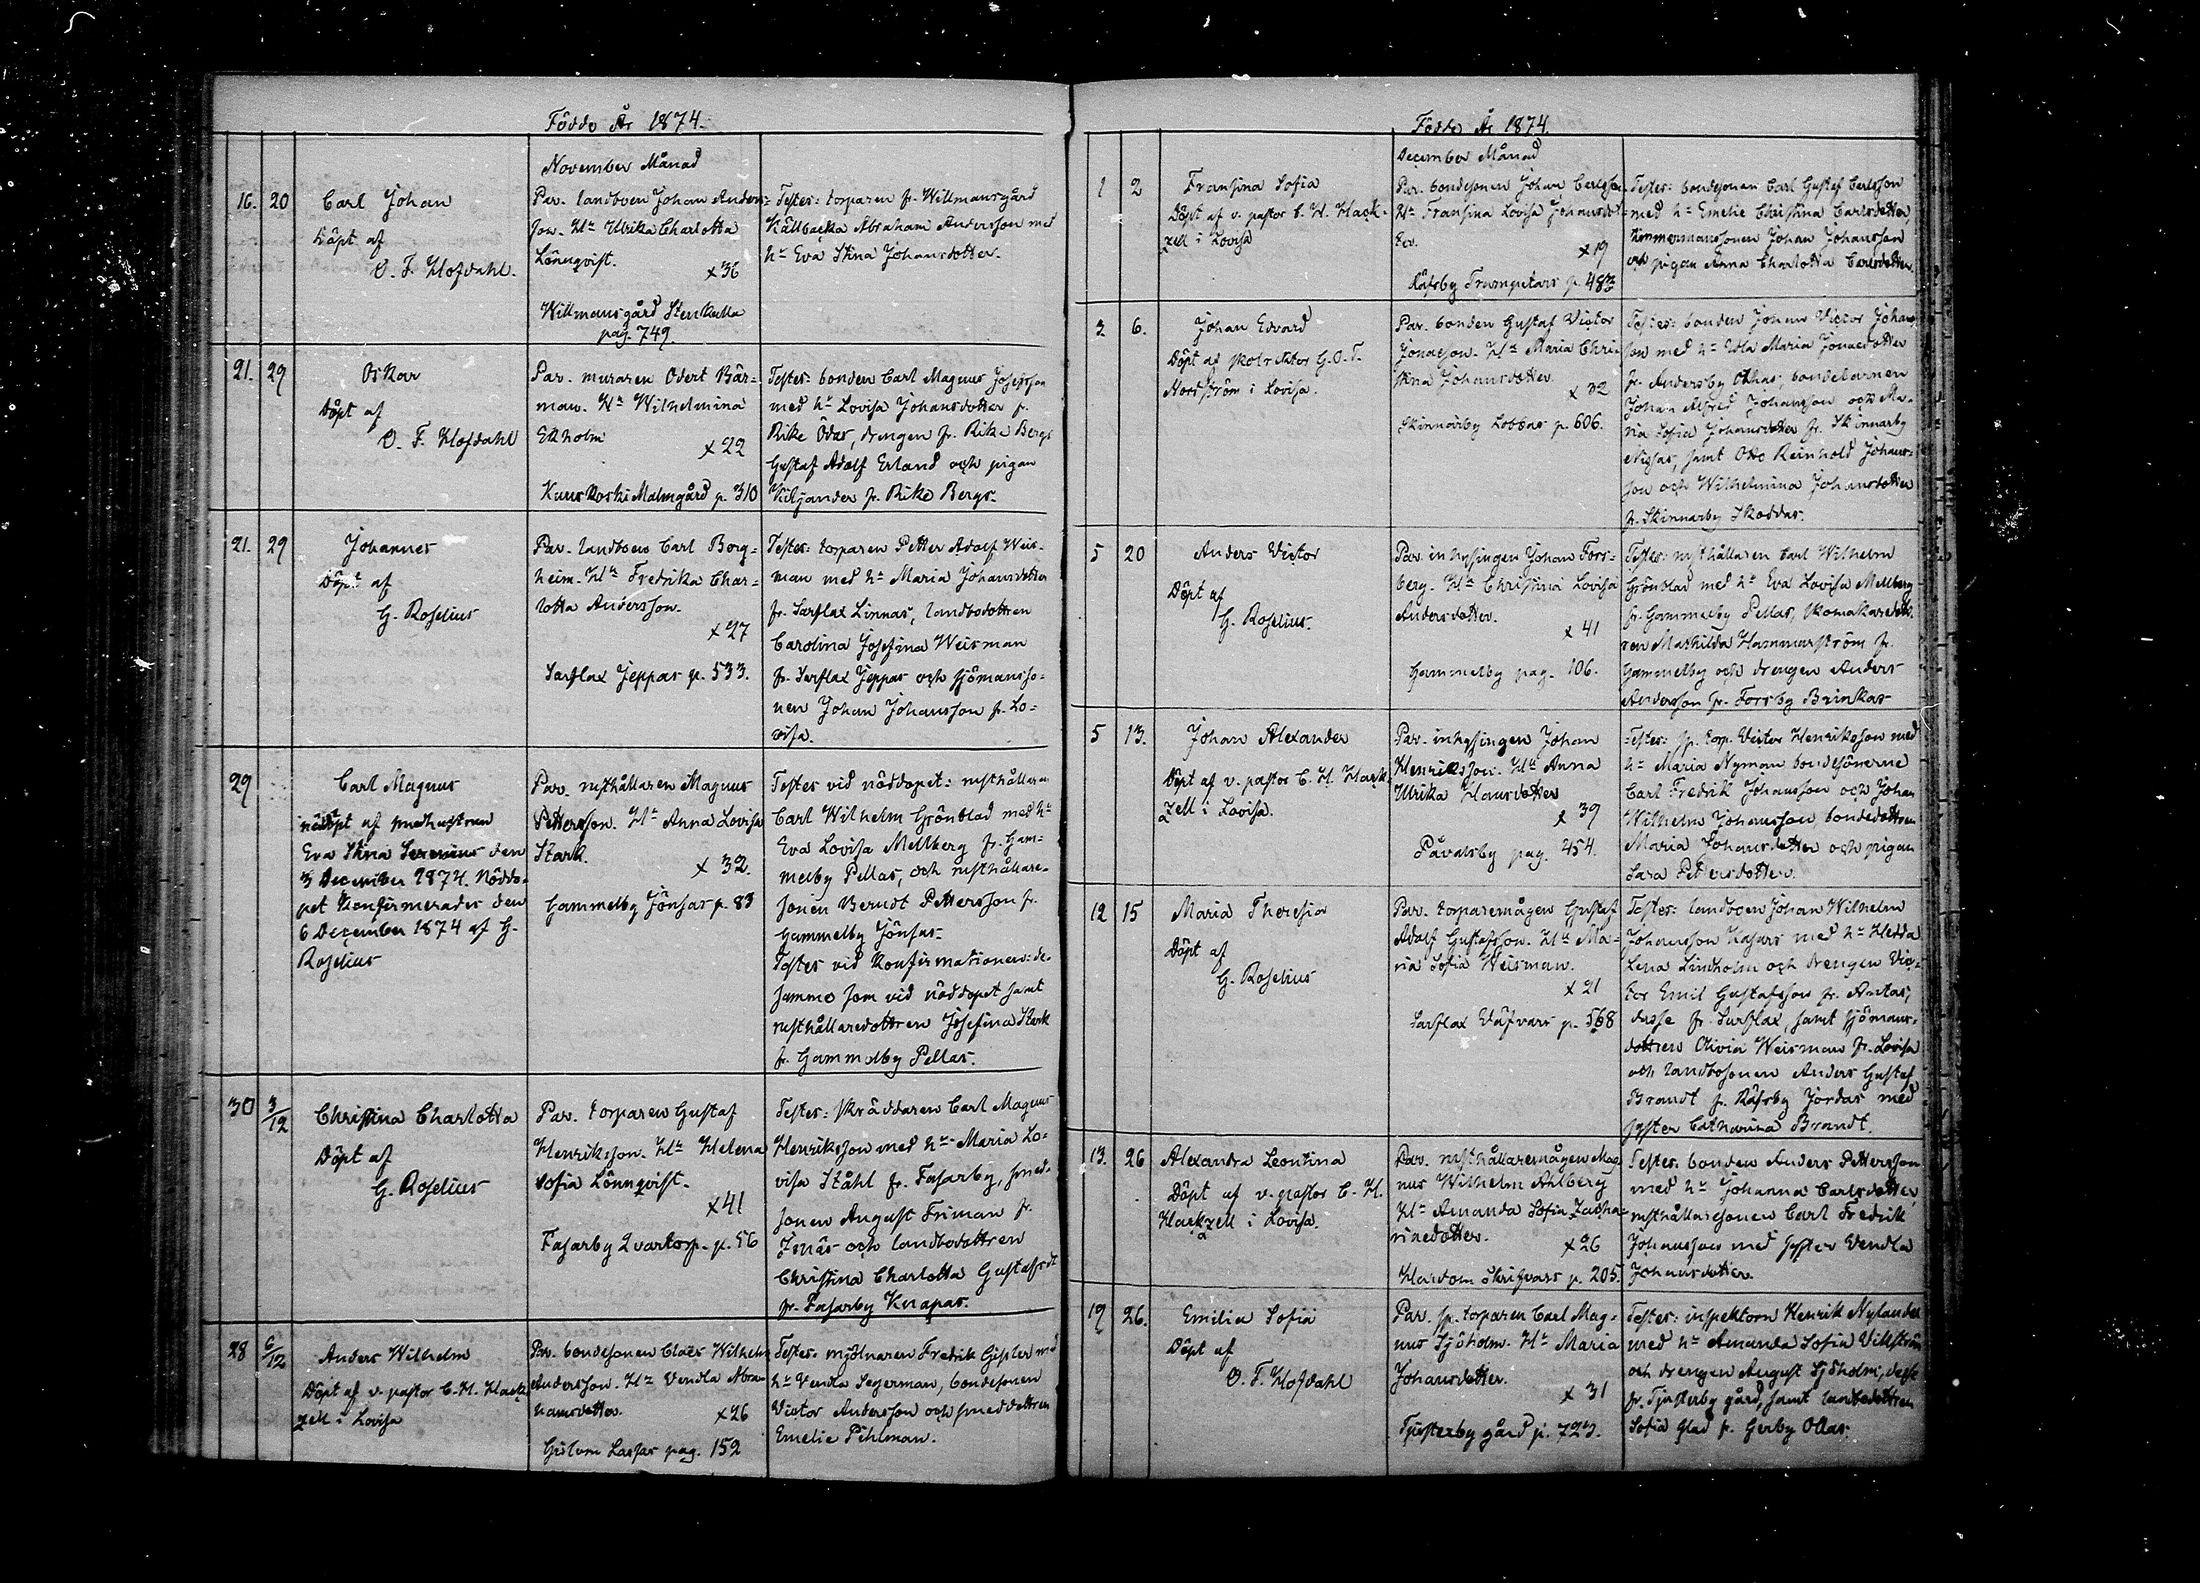 Födde År 1874.
November Månad
16. 20 Carl Johan
Döpt af
O. F. Hofdahl.
Par. landboen Johan Anders=
son. Hu Ulrika Charlotta
Lönnqvist.
x 36
Willmansgård Stenkulla
pag. 749.
Testes: torparen fr. Willmansgård
Källbacka Abraham Andersson med
hu Eva Stina Johansdotter.
21. 29 Oskar
Döpt af
O. F. Hofdahl
Par. muraren Odert Bär=
man. Hu Wilhelmina
Ekholm
x 22
Kuuskoski Malmgård p. 310
Testes: bonden Carl Magnus Josefsson
med hu Lovisa Johansdotter fr.
Rike Odas, drengen fr. Rike Bergs
Gustaf Adolf Erland och pigan
Kiljander fr. Rike Bergs.
21. 29 Johannes
Döpt af
G. Roselius
Par. landboen Carl Borg=
heim. Hu Fredrika Char=
lotta Andersson.
x 27
Sarflax Jeppas p. 533.
Testes: torparen Petter Adolf Weis-
man med hu Maria Johansdotter
fr. Sarflax Linnas, landbodottren
Carolina Josefina Weisman
fr. Sarflax Jeppas och sjömansso=
nen Johan Johansson fr. Lo=
visa.
29 Carl Magnus
nöddöpt af
Eva Stina den
3 December 1874. Nöddo-
pet Konfirmerades den
6 December 1874 af G.
Roselius
Par. rusthållaren Magnus
Pettersson. Hu Anna Lovisa
Stark.
x 32.
Gammelby Jönsas p. 83
Testes vid nöddopet: rusthållaren
Carl Wilhelm Grönblad med hu
Eva Lovisa Mellberg fr. Gam-
melby Pellas, och rusthållare-
sonen Berndt Pettersson fr.
Gammelby Jönsas.
Testes vid konfirmationen: de-
samme som vid nöddopet samt
rusthållaredottren Josefina Stark
fr. Gammelby Pellas.
30 3/12 Christina Charlotta
Döpt af
G. Roselius
Par. torparen Gustaf
Henriksson. Hu Helena
Sofia Lönnqvist.
x 41
Fasarby Qvartorp. p. 56
Testes: skräddaren Carl Magnus
Henriksson med hu Maria Lo=
visa Ståhl fr. Fasarby, smed-
sonen August Friman fr.
Isnäs och landbodottren
Christina Charlotta Gustafsdt
fr. Fasarby Knapas.
28 6/12 Anders Wilhelm
Döpt af v. pastor C. H. Hack
zell i Lovisa
Par. bondesonen Claës Wilhelm
Andersson. Hu Vendla Abra-
hamsdotter.
x 26
Gislom Lassas pag. 152
Testes: mjölnaren Fredrik Gisler med
hu Vendla Segerman, bondesonen
Victor Andersson och smeddottren
Emelie Pihlman.
Födde År 1874.
December Månad
1 2 Fransina Sofia
Döpt af v. pastor C. H. Hack-
zell i Lovisa
Par. bondesonen Johan Carlsson.
Hu Fransina Lovisa Johansdot
ter.
x 19
Räfsby Trumpetars p. 483
Testes: bondesonen Carl Gustaf Carlsson
med hu Emelie Christina Carlsdotter,
timmermanssonen Johan Johansson
och pigan Anna Charlotta Carlsdotter.
3 6. Johan Edvard
Döpt af skolrektor G. O. F.
Nordström i Lovisa.
Par. bonden Gustaf Victor
Jonasson. Hu Maria Chri-
stina Johansdotter
x 32
Skinnarby Lobbas p. 606.
Testes: bonden Johan Victor Johans
son med hu Ulla Maria Jonasdotter
fr. Andersby Othas, bondebarnen
Johan Alfred Johansson och Ma-
ria Sofia Johansdotter fr. Skinnarby
Nissas, samt Otto Reinhold Johans-
son och Wilhelmina Johansdotter
fr. Skinnarby Skoddas.
5 20 Anders Victor
Döpt af
G. Roselius.
Par. inhysingen Johan Fors=
berg. Hu Christina Lovisa
Andersdotter.
x 41
Gammelby pag. 106.
Testes: rusthållaren Carl Wilhelm
Grönblad med hu Eva Lovisa Mellberg
fr. Gammelby Pellas, skomakaredott
ren Mathilda Hammarström fr.
Gammelby och drengen Anders
Andersson fr. Forsby Brinkas
5 13. Johan Alexander
Döpt af v. pastor C. H. Hack-
zell i Lovisa.
Par. inhysingen Johan
Henriksson. Hu Anna
Ulrika Hansdotter
x 39
Påvalsby pag. 454.
Testes: sp. torp. Victor Henriksson med
hu Maria Nyman bondesönerne
Carl Fredrik Johansson och Johan
Wilhelm Johansson, bondedottren
Maria Johansdotter och pigan
Sara Pettersdotter.
12 15 Maria Theresia
Döpt af
G. Roselius
Par. torparemågen Gustaf
Adolf Gustafsson. Hu Ma-
ria Sofia Weisman.
x 21
Sarflax Väfvars p. 568
Testes: landboen Johan Wilhelm
Johansson Kasars med hu Hedda
Lena Lindholm och drengen Vic-
tor Emil Gustafsson fr. Antas,
desse fr. Sarflax, samt sjömans-
dottren Olivia Weisman fr. Lovisa
och landbosonen Anders Gustaf
Brandt fr. Räfsby Jordas med
syster Catharina Brandt.
13. 26 Alexandra Leontina
Döpt af v. pastor C. H.
Hackzell i Lovisa.
Par. rusthållaremågen Mag
nus Wilhelm Ahlberg
Hu Amanda Sofia Zacha-
riaedotter.
x 26
Hardom Skrifvars p. 205.
Testes: bonden Anders Pettersson
med hu Johanna Carlsdotter,
rusthållaresonen Carl Fredrik
Johansson med syster Vendla
Johansdotter.
19 26. Emilia Sofia
Döpt af
O. F. Hofdahl
Par. sp. torparen Carl Mag-
nus Sjöholm. Hu Maria
Johansdotter.
x 31
Tjusterby gård p. 723.
Testes: inspektorn Henrik Nylander
med hu Amanda Sofia
och drengen August Sjöholm, desse
fr. Tjusterby gård, samt landbodottren
Sofia Glad fr. Gerby Ollas.